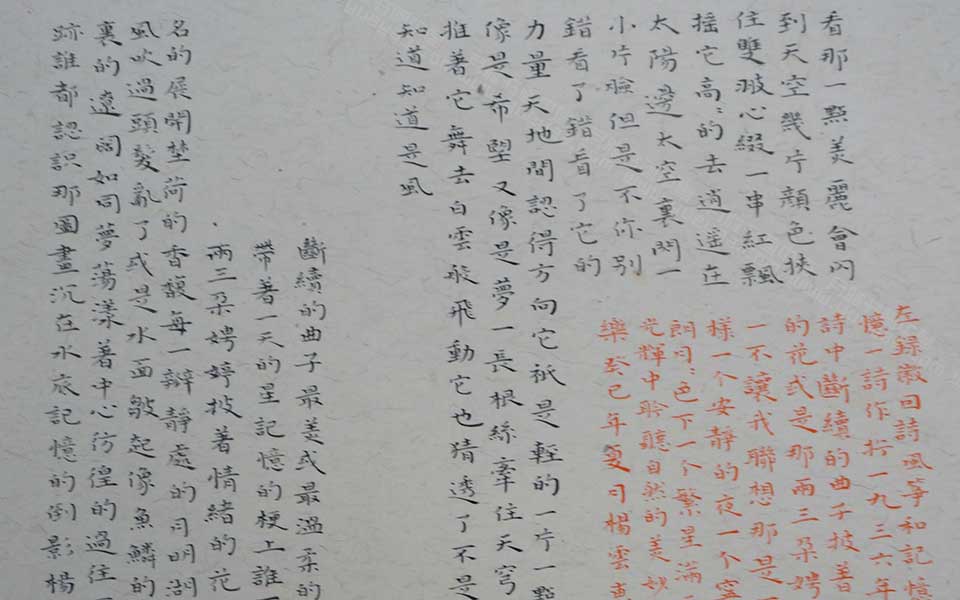 看那一點美麗會閃
到天空幾片顏色挾
住雙翅心綴一串紅飄
搖它高〻的去逍遥在
太陽邊太空裏閃一
小片臉但是不你别
錯看了錯看了它的
力量天地間認得方向它祇是輕的一片一點
像是希望又像是夢一長根絲牽住天穹
推著它舞去白雲般飛動它也猜透了不是
知道知道是風
左錄徽因詩風筝和記憶
憶一詩作於一九三六年
詩中斷續的曲子披著
的花或是那兩三朵娉
一不讓我聯想那是一
樣一个安靜的夜一个寧
朗月〻色下一个繁星滿
光輝中聆聽自然的美妙
樂癸巳年夏月楊雲
斷續的曲子最美或最温柔的
帶著一天的星記憶的梗上誰
兩三朵娉婷披著情緒的花
名的展開埜荷的香馥每一瓣靜處的月明湖
風吹過頭髮亂了或是水面皺起像魚鱗的
裏的遼闊如同夢蕩漾著中心彷徨的過往
跡誰都認識那圖畫沉在水底記憶的倒影楊